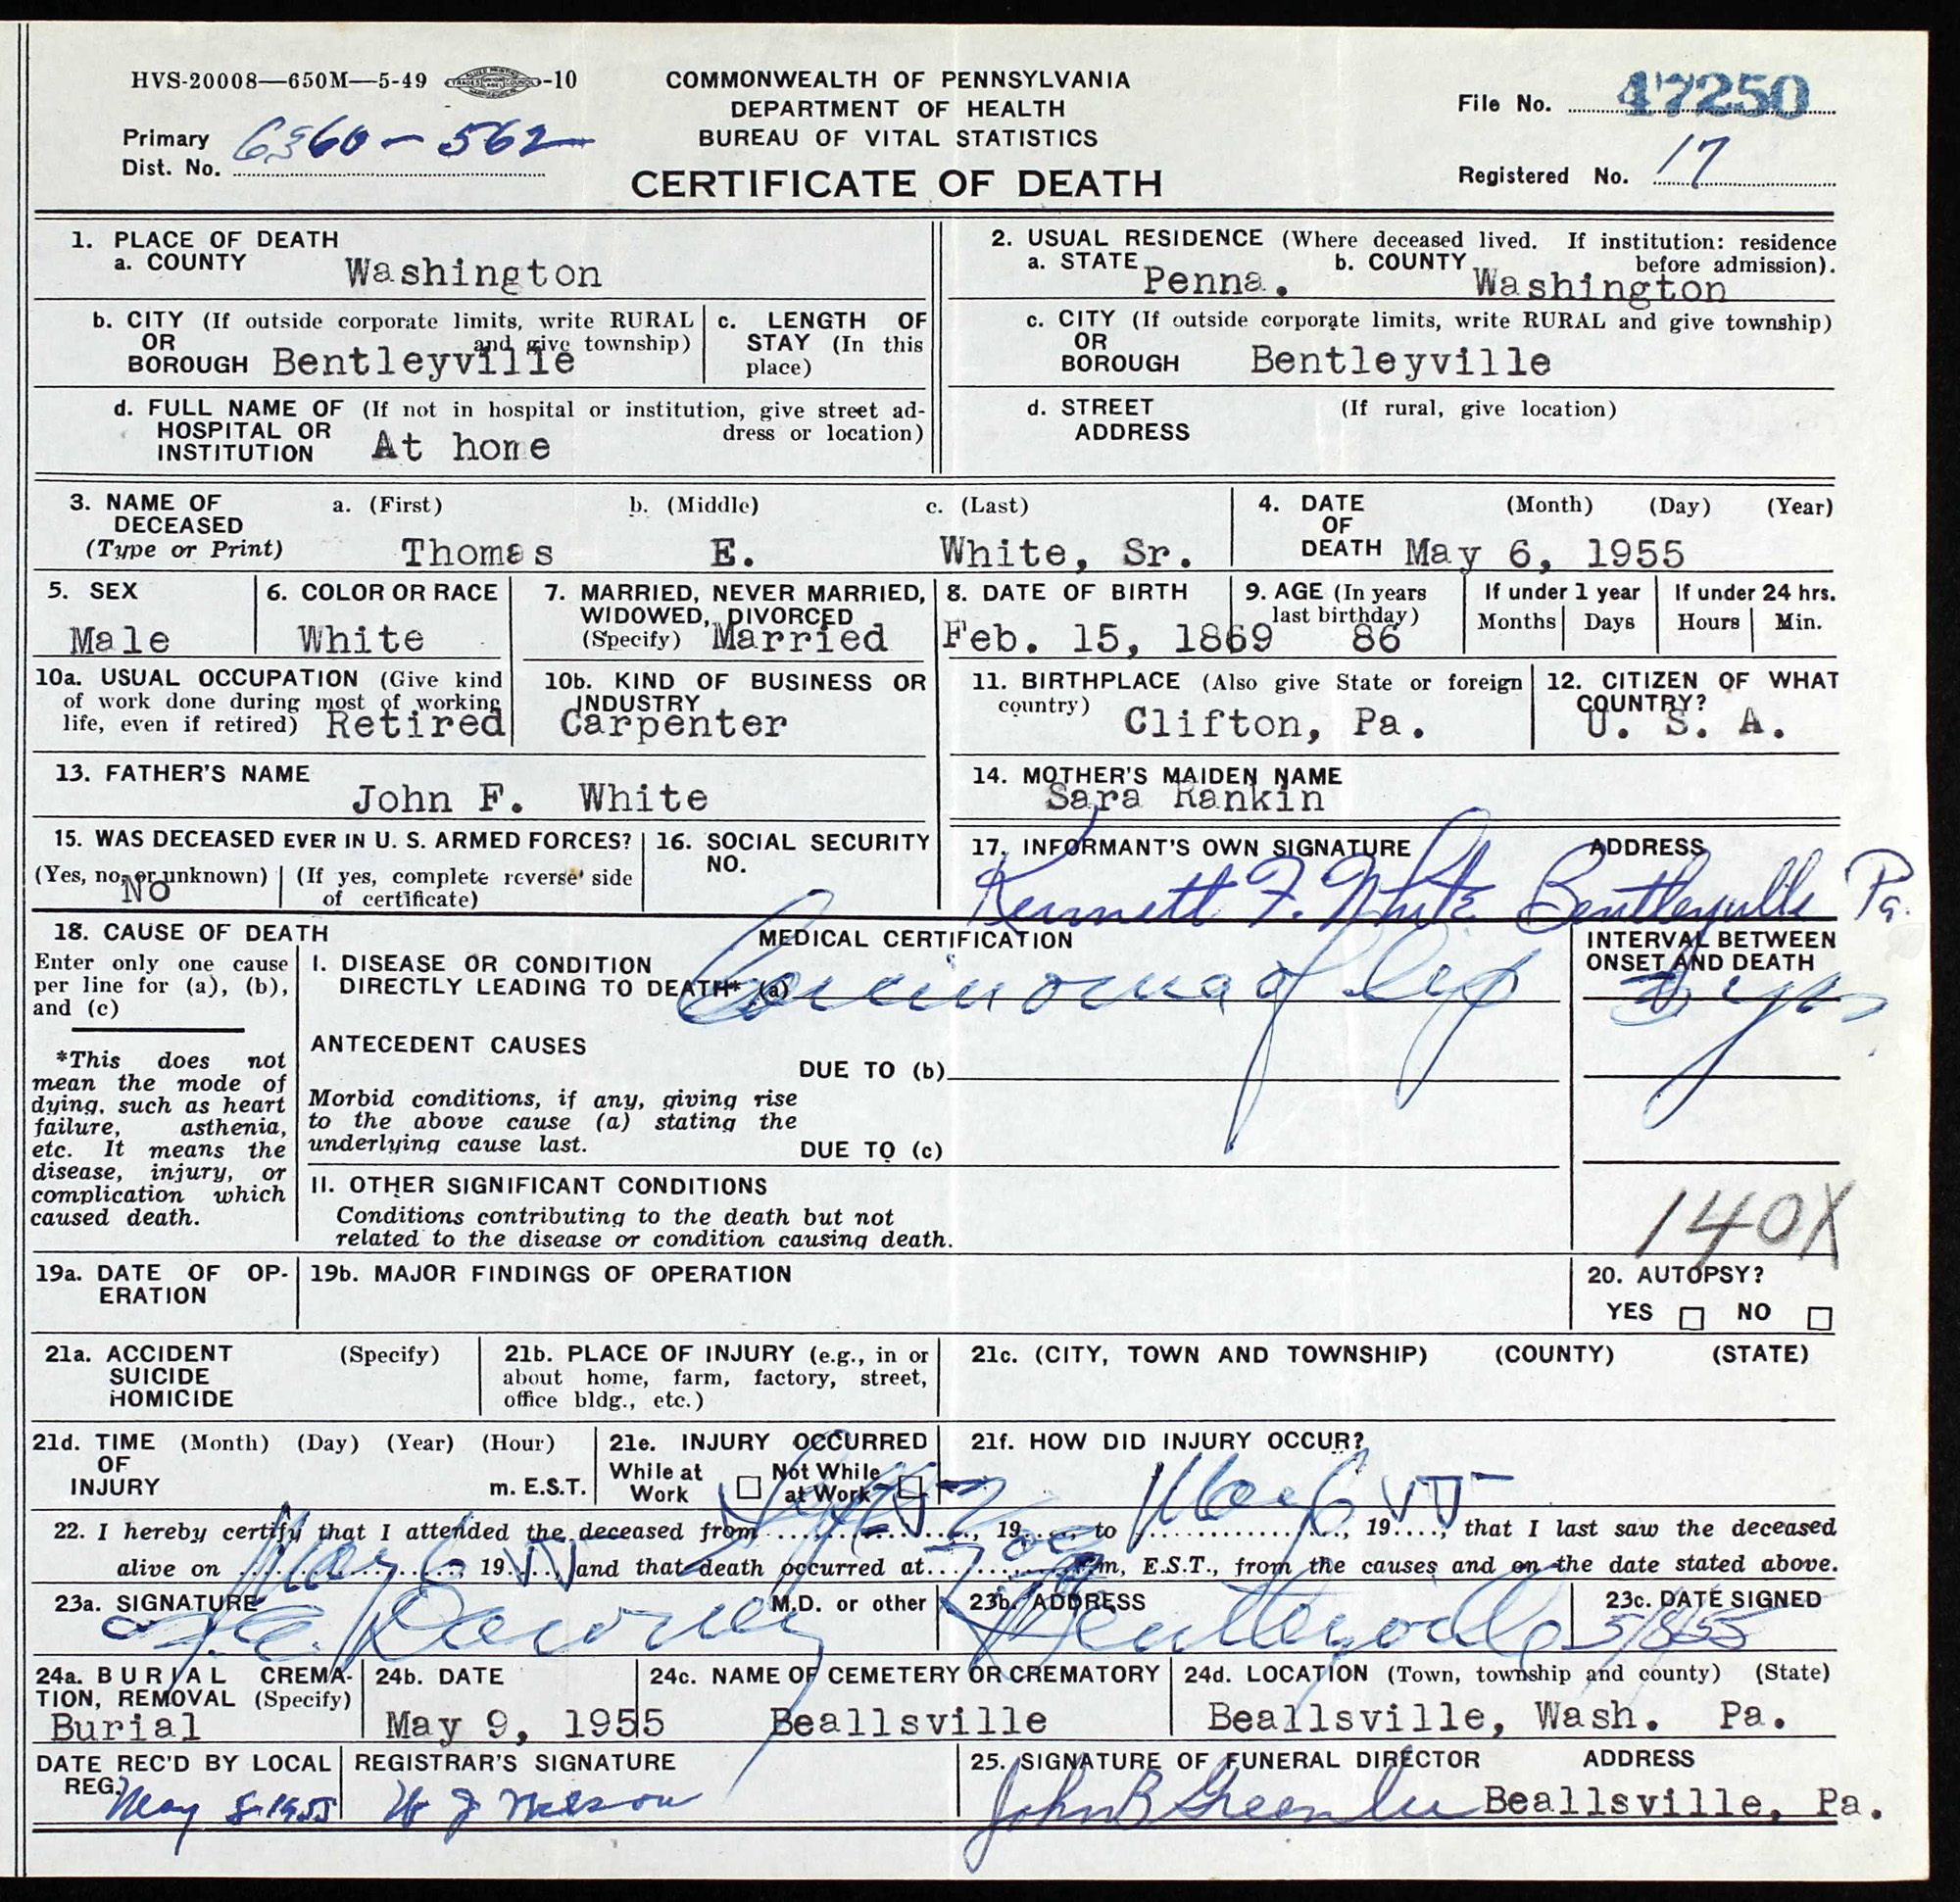 HVS-20008—650M—5-49 -10
COMMONWEALTH OF PENNSYLVANIA
DEPARTMENT OF HEALTH
BUREAU OF VITAL STATISTICS
CERTIFICATE OF DEATH
File No. 47250
Primary
Dist. No. 6360-562
Registered No. 17
1. PLACE OF DEATH
a. COUNTY Washington
b. CITY (If outside corporate limits, write RURAL
OR and give township)
BOROUGH Bentleyville
c. LENGTH OF
STAY (In this
place)
d. FULL NAME OF (If not in hospital or institution, give street ad-
HOSPITAL OR dress or location)
INSTITUTION At home
2. USUAL RESIDENCE (Where deceased lived. If institution: residence
before admission).
a. STATE Penna. b. COUNTY Washington
c. CITY (If outside corporate limits, write RURAL and give township)
OR
BOROUGH Bentleyville
d. STREET (If rural, give location)
ADDRESS
3. NAME OF a. (First) b. (Middle) c. (Last)
DECEASED
(Type or Print) Thomas E. White, Sr.
4. DATE (Month) (Day) (Year)
OF
DEATH May 6, 1955
5. SEX
Male
6. COLOR OR RACE
White
7. MARRIED, NEVER MARRIED,
WIDOWED, DIVORCED
(Specify) Married
8. DATE OF BIRTH
Feb. 15, 1869
9. AGE (In years
last birthday)
86
If under 1 year
Months Days
If under 24 hrs.
Hours Min.
10a. USUAL OCCUPATION (Give kind
of work done during most of working
life, even if retired) Retired
10b. KIND OF BUSINESS OR
INDUSTRY
Carpenter
11. BIRTHPLACE (Also give State or foreign
country) Clifton, Pa.
12. CITIZEN OF WHAT
COUNTRY?
U. S. A.
13. FATHER'S NAME
John F. White
14. MOTHER'S MAIDEN NAME
Sara Rankin
15. WAS DECEASED EVER IN U. S. ARMED FORCES?
(Yes, no, or unknown) (If yes, complete reverse side
of certificate)
No
16. SOCIAL SECURITY
NO.
17. INFORMANT'S OWN SIGNATURE ADDRESS
Kennett F. White Bentleyville Pa.
18. CAUSE OF DEATH
Enter only one cause
per line for (a), (b),
and (c)
*This does not
mean the mode of
dying, such as heart
failure, asthenia,
etc. It means the
disease, injury, or
complication which
caused death.
MEDICAL CERTIFICATION
I. DISEASE OR CONDITION
DIRECTLY LEADING TO DEATH* (a) Carcinoma of lip
INTERVAL BETWEEN
ONSET AND DEATH
yrs
ANTECEDENT CAUSES
DUE TO (b)
Morbid conditions, if any, giving rise
to the above cause (a) stating the
underlying cause last.
DUE TO (c)
II. OTHER SIGNIFICANT CONDITIONS
Conditions contributing to the death but not
related to the disease or condition causing death.
140X
19a. DATE OF OP-
ERATION
19b. MAJOR FINDINGS OF OPERATION
20. AUTOPSY?
YES NO
21a. ACCIDENT (Specify)
SUICIDE
HOMICIDE
21b. PLACE OF INJURY (e.g., in or
about home, farm, factory, street,
office bldg., etc.)
21c. (CITY, TOWN AND TOWNSHIP) (COUNTY) (STATE)
21d. TIME (Month) (Day) (Year) (Hour)
OF
INJURY m. E.S.T.
21e. INJURY OCCURRED
While at Work
Not While at Work
21f. HOW DID INJURY OCCUR?
22. I hereby certify that I attended the deceased from , 19 , to May 6, 1955, that I last saw the deceased
alive on May 6, 1955, and that death occurred at m, E.S.T., from the causes and on the date stated above.
23a. SIGNATURE M.D. or other
23b. ADDRESS
Bentleyville
23c. DATE SIGNED
5/8/55
24a. BURIAL CREMA-
TION, REMOVAL (Specify)
Burial
24b. DATE
May 9, 1955
24c. NAME OF CEMETERY OR CREMATORY
Beallsville
24d. LOCATION (Town, township and county) (State)
Beallsville, Wash. Pa.
DATE REC'D BY LOCAL
REG.
May 8-1955
REGISTRAR'S SIGNATURE
W J Nelson
25. SIGNATURE OF FUNERAL DIRECTOR ADDRESS
John B Greenlee Beallsville, Pa.